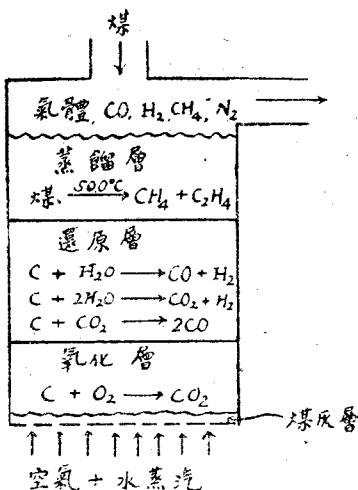 煤
氣體, CO, H₂, CH₄, N₂
蒸餾層
煤 500°C → CH₄ + C₂H₄
還原層
C + H₂O → CO + H₂
C + 2H₂O → CO₂ + H₂
C + CO₂ → 2CO
氧化層
C + O₂ → CO₂
煤灰層
空氣 + 水蒸汽